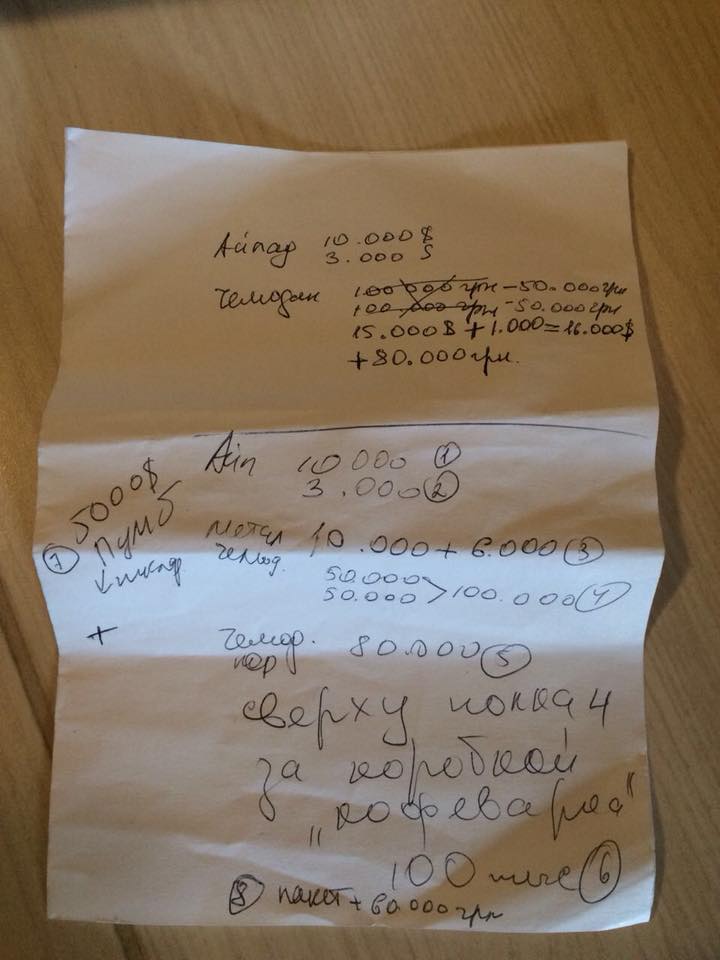 Айпад 10.000$
3.000$
Чемодан 100 000 грн - 50.000грн
100 000 грн - 50.000грн
15.000$ + 1.000 = 16.000$
+ 80.000грн.
Айп 10 000 ①
3.000 ②
5000$
Пумб
⑦
метал чемод. 10.000 + 6.000 ③
50.000
50.000 > 100.000 ④
+
чемод. 80.000 ⑤
сверху
за коробкой
"кофеварка"
100 тыс ⑥
⑧ пакет + 60.000 грн